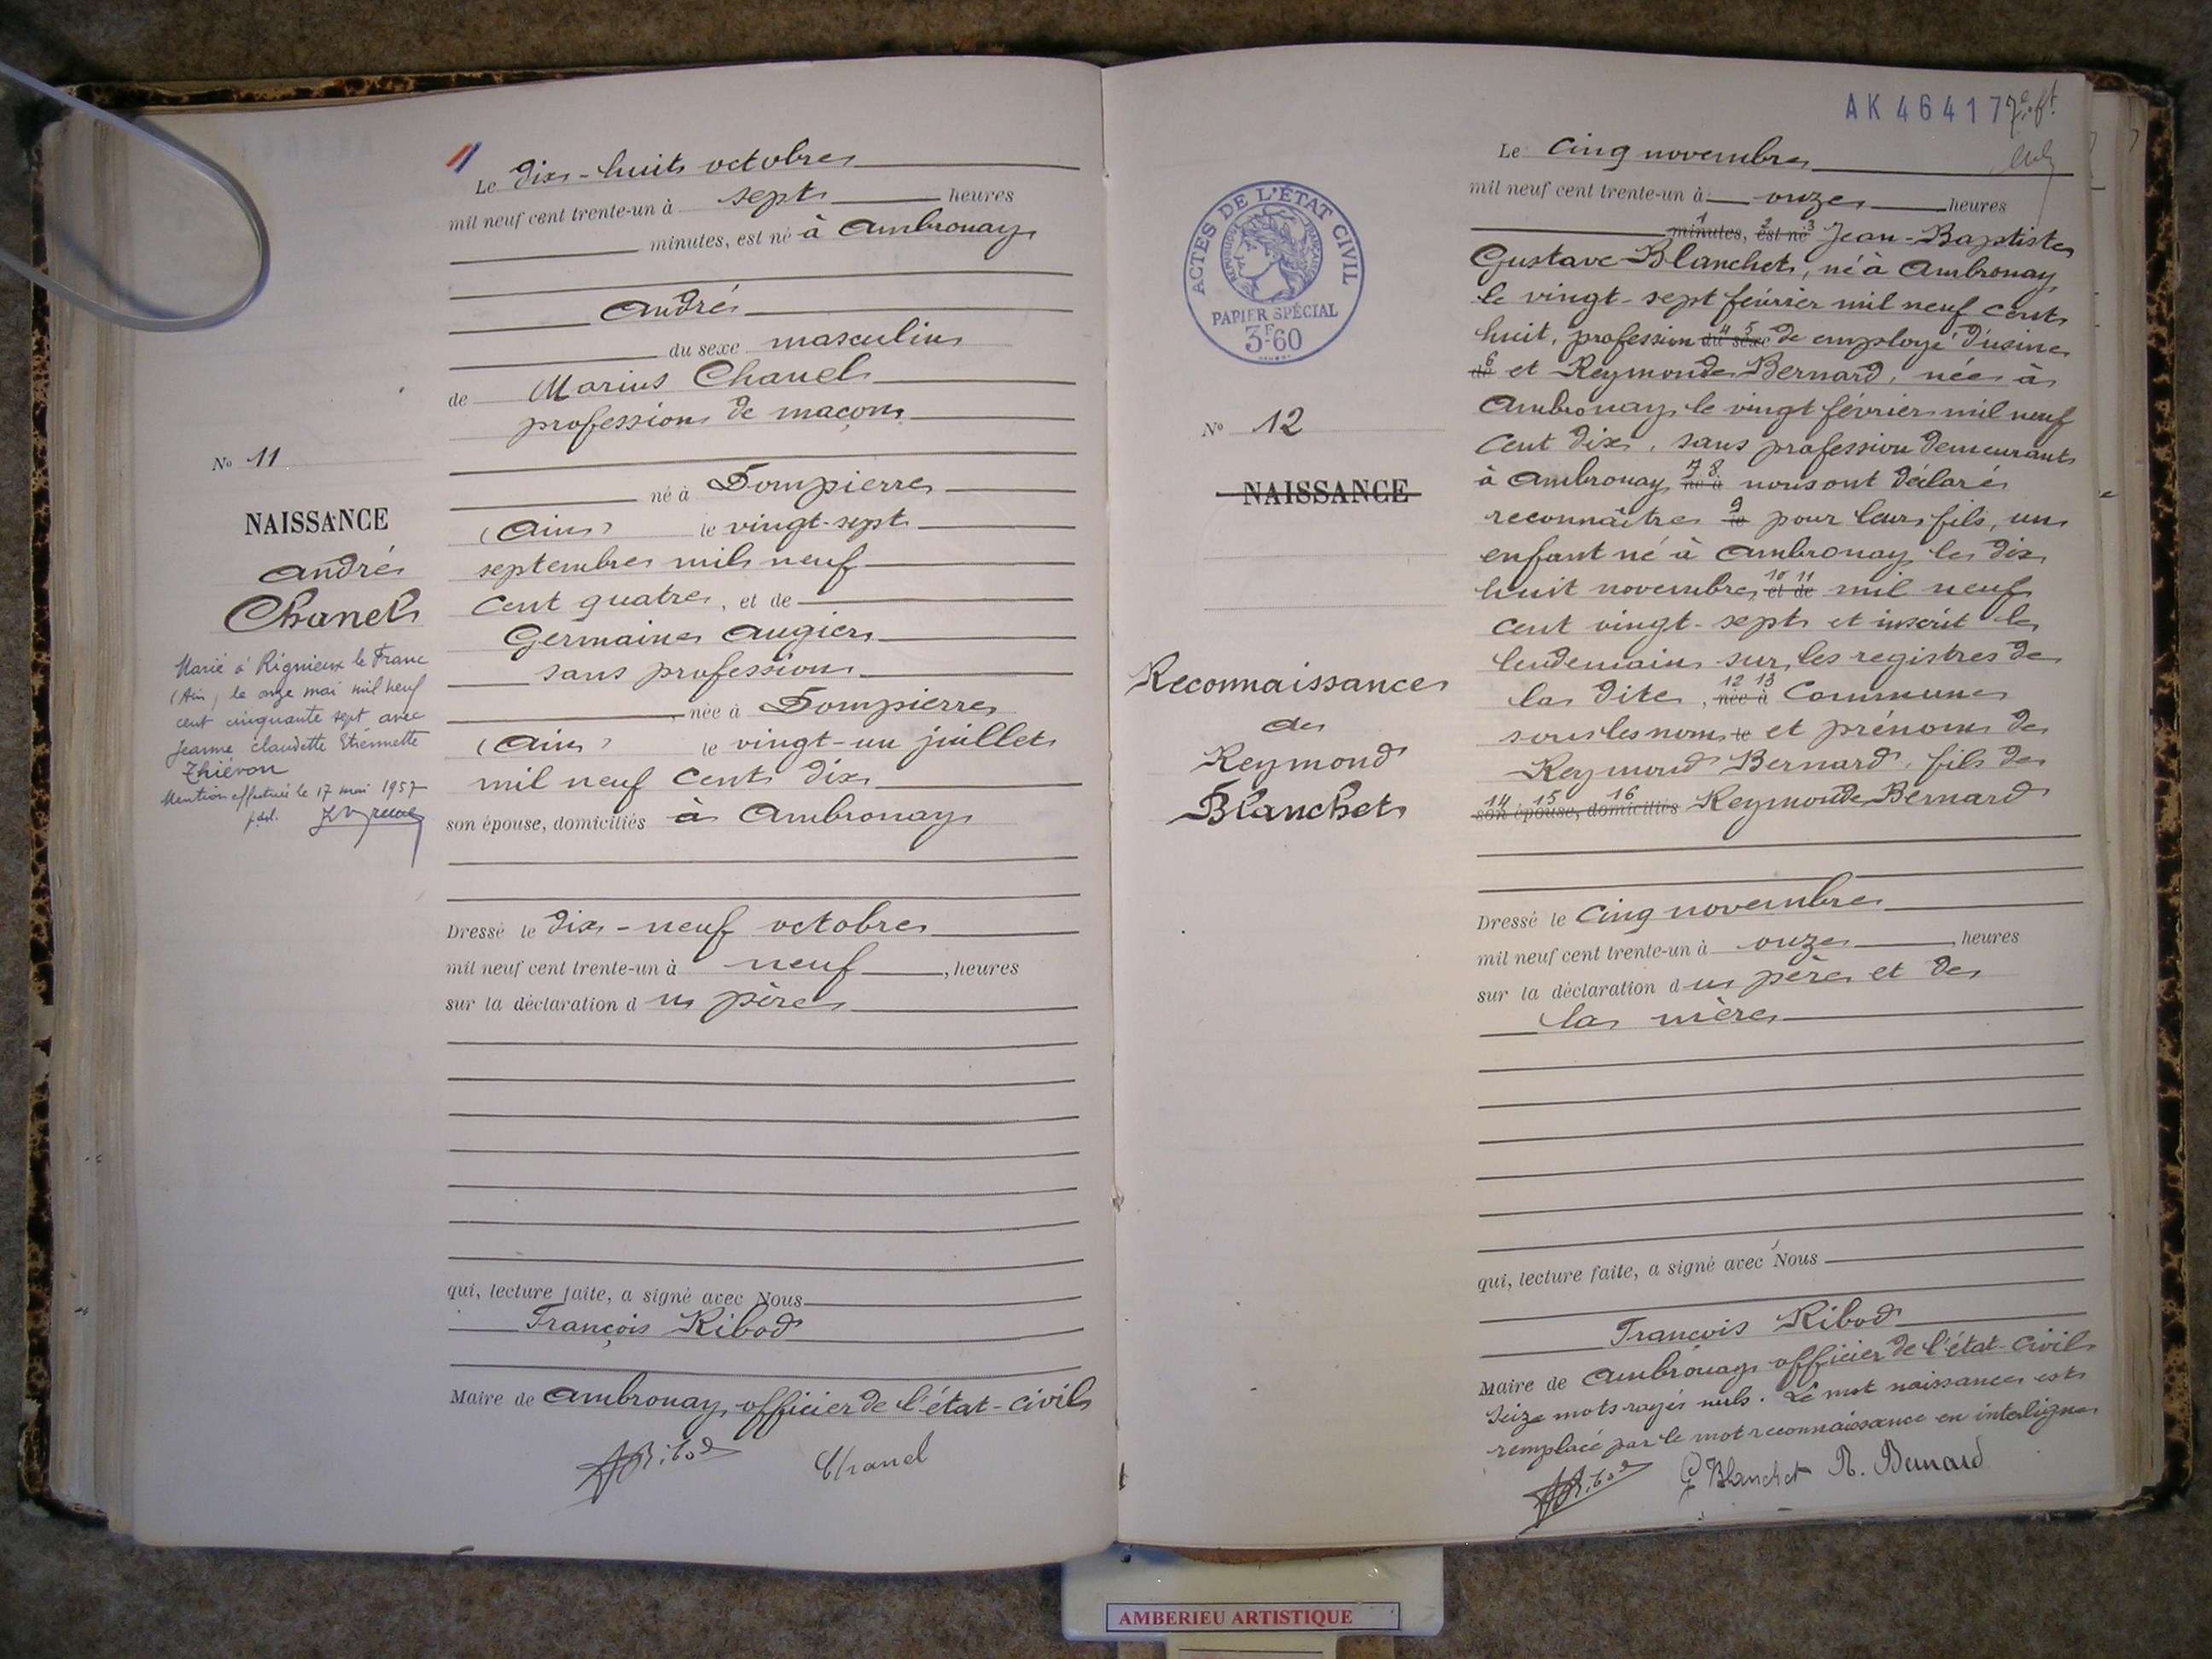 Le dix-huit octobre
mil neuf cent trente-un à sept heures
minutes, est né à Ambronay
André
du sexe masculin
de Marius Chanel
profession de maçon
né à Dompierre
(Ain) le vingt-sept
septembre mil neuf
cent quatre, et de
Germaine Augier
sans profession
née à Dompierre
(Ain) le vingt-un juillet
mil neuf cent dix
son épouse, domiciliés à Ambronay
Dressé le dix-neuf octobre
mil neuf cent trente-un à neuf, heures
sur la déclaration du père
qui, lecture faite, a signé avec Nous
François Ribod
Maire de Ambronay, officier de l'état-civil
Ribod Chanel
No 11
NAISSANCE
André
Chanel
Marié à Rignieux le Franc
(Ain) le onze mai mil neuf
cent cinquante sept avec
Jeanne Claudette Etiennette
Thiévon
Mention effectuée le 17 mai 1957
AK 46417
ACTES DE L'ÉTAT CIVIL
RÉPUBLIQUE FRANÇAISE
PAPIER SPÉCIAL
3F60
No 12
NAISSANCE
Reconnaissance
de
Reymond
Blanchet
Le cinq novembre
mil neuf cent trente-un à onze heures
1 2 3
minutes, est né Jean-Baptiste
Gustave Blanchet, né à Ambronay
le vingt-sept février mil neuf cent
4 5
huit, profession du sexe de employé d'usine
6
de et Reymonde Bernard, née à
Ambronay le vingt février mil neuf
cent dix, sans profession demeurant
7 8
à Ambronay né à nous ont déclaré
9
reconnaître le pour leur fils, un
enfant né à Ambronay le dix
10 11
huit novembre et de mil neuf
cent vingt-sept et inscrit le
lendemain sur les registres de
12 13
la dite, née à Commune
sous les nom le et prénom de
Reymond Bernard, fils de
14 15 16
son épouse, domiciliés Reymonde Bernard
Dressé le cinq novembre
mil neuf cent trente-un à onze, heures
sur la déclaration du père et de
la mère
qui, lecture faite, a signé avec Nous
François Ribod
Maire de Ambronay officier de l'état-civil
Seize mots rayés nuls. Le mot naissance est
remplacé par le mot reconnaissance en interligne
Ribod G Blanchet R. Bernard
AMBERIEU ARTISTIQUE